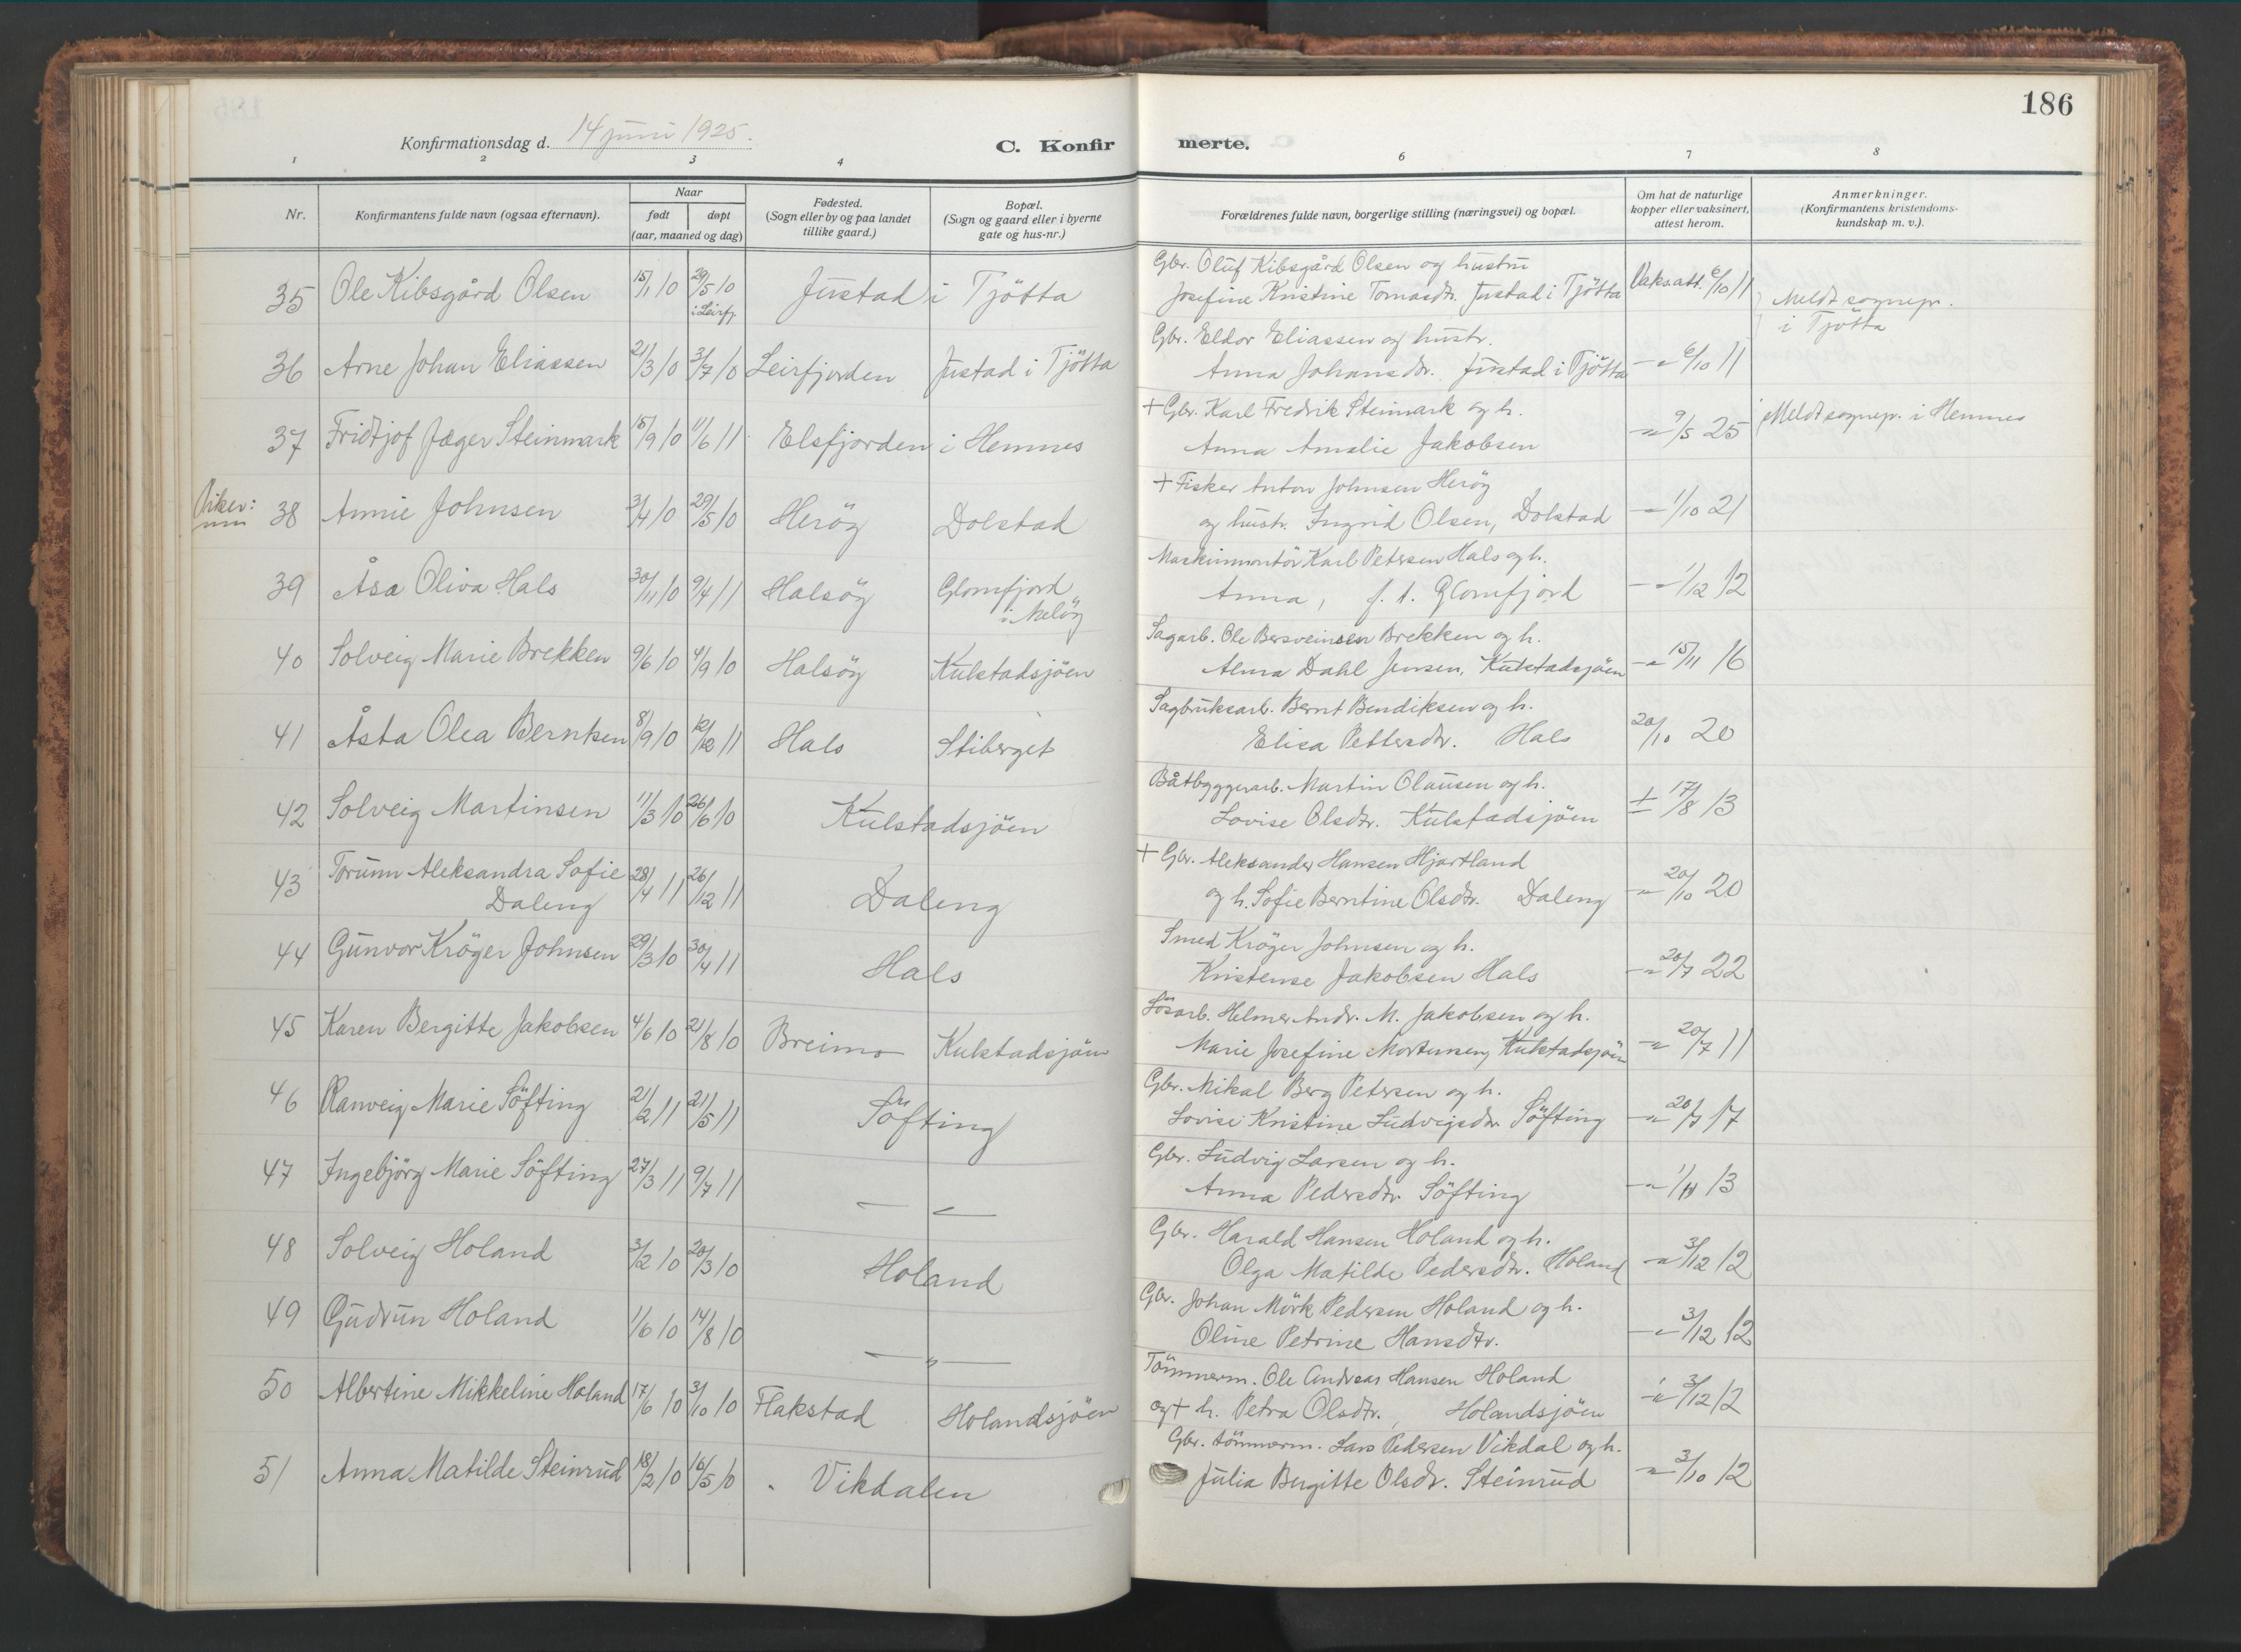 186
Konfirmationsdag d. 14 juni 1925.
C. Konfir
merte.
1 2 3 4 6 7 8
Nr.
Konfirmantens fulde navn (ogsaa efternavn).
Naar
født døpt
(aar, maaned og dag)
Fødested.
(Sogn eller by og paa landet
tillike gaard.)
Bopæl.
(Sogn og gaard eller i byerne
gate og hus-nr.)
Forældrenes fulde navn, borgerlige stilling (næringsvei) og bopæl.
Om hat de naturlige
kopper eller vaksinert,
attest herom.
Anmerkninger.
(Konfirmantens kristendoms-
kundskap m. v.).
35 Ole Kibsgård Olsen 15/1 10 29/5 10 i Leirfj. Justad i Tjötta
Gbr. Oluf Kibsgård Olsen og hustru
Josefine Kristine Tomasdtr. Justad i Tjötta Vaks.att. 6/10 11
Meldt sognepr.
i Tjötta
36 Arne Johan Eliassen 21/3 10 3/7 10 Leirfjorden Justad i Tjötta
Gbr. Eldor Eliassen og hustr.
Anna Johansdtr. Justad i Tjötta –„– 6/10 11
37 Fridtjof Jæger Steinmark 15/9 10 11/6 11 Elsfjorden i Hemnes
+ Gbr. Karl Fredrik Steinmark og h.
Anna Amalie Jakobsen –„– 9/5 25
Meldt sognepr. i Hemnes
Piker:
38 Annie Johnsen 3/4 10 29/5 10 Heröy Dolstad
+ Fisker Anton Johnsen Heröy
og hustr. Ingrid Olsen, Dolstad –„– 1/10 21
39 Åsa Oliva Hals 30/11 10 9/4 11 Halsöy Glomfjord
i Melöy
Maskinmontör Karl Petersen Hals og h.
Anna, f. t. Glomfjord –„– 1/12 12
40 Solveig Marie Brekken 9/6 10 4/9 10 Halsöy Kulstadsjöen
Sagarb. Ole Bersveinsen Brekken og h.
Alma Dahl Jensen, Kulstadsjöen –„– 15/11 16
41 Åsta Olea Berntsen 8/9 10 12/12 11 Hals Stiberget
Sagbruksarb. Bernt Bendiksen og h.
Elisa Pettersdtr. Hals 20/10 20
42 Solveig Martinsen 11/3 10 26/6 10 Kulstadsjöen
Båtbyggerarb. Martin Olausen og h.
Lovise Olsdtr. Kulstadsjöen 17/8 13
43 Torunn Aleksandra Sofie
Daleng 28/4 11 26/12 11 Daleng
+ Gbr. Aleksander Hansen Hjortland
og h. Sofie Berntine Olsdtr. Daleng –„– 20/10 20
44 Gunvor Kröger Johnsen 29/3 10 30/4 11 Hals
Smed Kröger Johnsen og h.
Kristense Jakobsen Hals –„– 20/7 22
45 Karen Bergitte Jakobsen 4/6 10 21/8 10 Breimo Kulstadsjöen
Lösarb. Helmer Andr. M. Jakobsen og h.
Marie Josefine Mortensen, Kulstadsjöen –„– 20/7 11
46 Ranveig Marie Söfting 21/2 11 21/5 11 Söfting
Gbr. Mikal Berg Petersen og h.
Lovise Kristine Ludvigsdtr. Söfting –„– 20/7 17
47 Ingebjörg Marie Söfting 27/3 11 9/7 11 –„–
Gbr. Ludvig Larsen og h.
Anna Pedersdtr. Söfting –„– 1/11 13
48 Solveig Holand 3/2 10 20/3 10 Holand
Gbr. Harald Hansen Holand og h.
Olga Matilde Pedersdtr. Holand –„– 3/12 12
49 Gudrun Holand 1/6 10 14/8 10 –„–
Gbr. Johan Mörk Pedersen Holand og h.
Oline Petrine Hansdtr. –„– 3/12 12
50 Albertine Mikkeline Holand 17/6 10 3/10 10 Flakstad Holandsjöen
Tömmerm. Ole Andreas Hansen Holand
og + h. Petra Olsdtr., Holandsjöen –„– 3/12 12
51 Anna Matilde Steinrud 18/2 10 16/5 10 Vikdalen
Gbr. tömmerm. Lars Pedersen Vikdal og h.
Julia Bergitte Olsdtr. Steinrud –„– 3/10 12